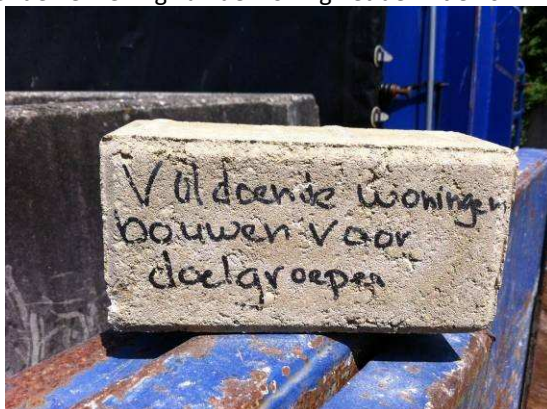 Voldoende woningen
bouwen voor
doelgroepen